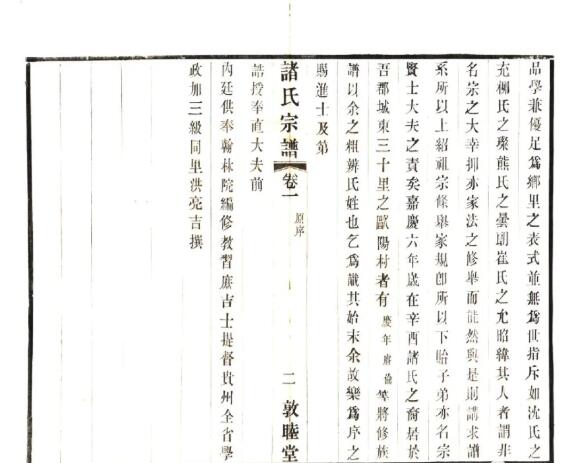 品學兼優足爲鄉里之表式並無爲世指斥如沈氏之
充柳氏之璨熊氏之曇朗崔氏之允昭緯其人者謂非
名宗之大幸抑亦家法之修舉而能然與是則講求譜
系所以上紹祖宗條舉家規即所以下貽子弟亦名宗
賢士大夫之責矣嘉慶六年歲在辛酉諸氏之裔居於
吾郡城東三十里之歐陽村者有慶年 等將修族
譜以余之粗辨氏姓也乞爲識其始末余故樂爲序之
賜進士及第
誥授奉直大夫前
內廷供奉翰林院編修教習庶吉士提督貴州全省學
政加三級同里洪亮吉撰
諸氏宗譜 卷一 原序 二 敦睦堂